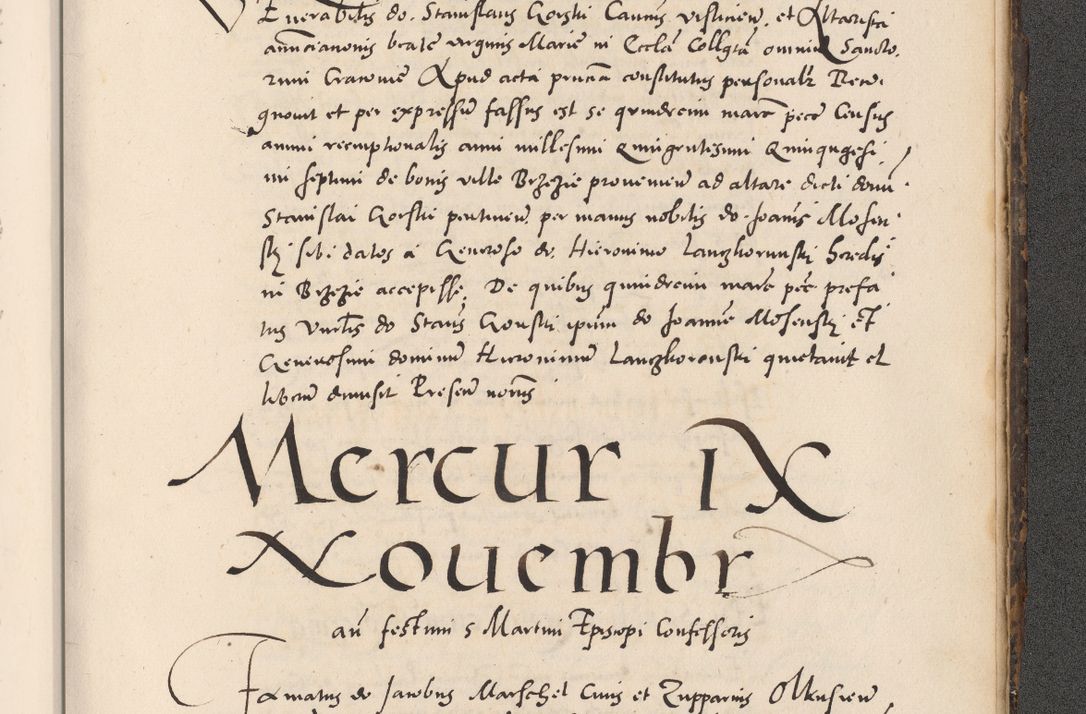 Venerabilis do. Stanislaus Gorski Canus visliciensis, et Altarista
annuncianonis beate virginis Marie in Eccla Collgta omniu Sancto.
rum Cracovie Apud acta prntia constitutus personalr Reco.
gnovit et per expressum fassus est se quindecim marc pecc Census
annui reemptionalis anni millesimi Quingentesimi Quinquagesi.
mi septimi de bonis ville Brzezie provenien ad altare dicti domi
Stanislai Gorski pertinen, per manus nobilis do. Joanis Mosen
skj sibi datos a Generoso do. Hieronimo Lanczkorunskj heredis
in Brzezie accepisse, De quibus quindecim marc pecc prefa
tus Vnrlis do Stanis Goruski ipsum do Joannem Mosenskj et
Generosum dominum Hieronimum Lanczkorunski quietavit et
liberum dimisit Presen nonis
Mercur IX
Novembr
an festum s Martini Episcopi Confessoris
Famatus do Jacobus Marschel Civis et Zupparius Olkusien,